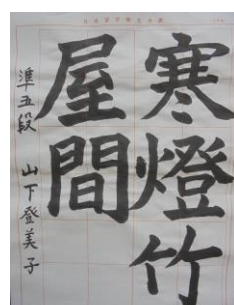 寒燈竹
屋間
準五段 山下登美子